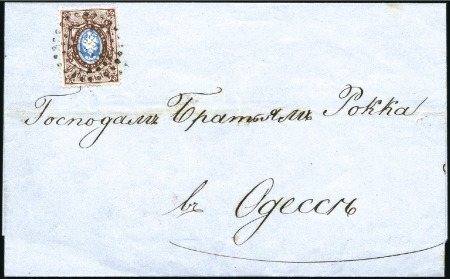 Господамъ Братьямъ Рокка
въ Одессѣ